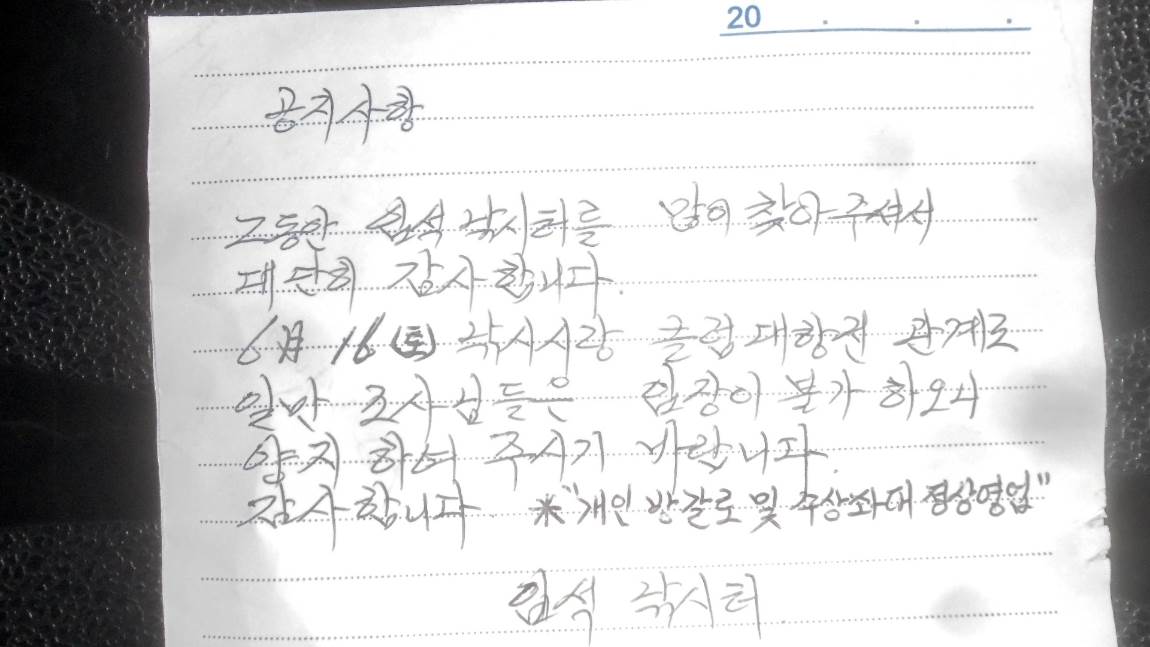 20 . . .
공지사항
그동안 입석낚시터를 많이 찾아주셔서
대단히 감사합니다.
6月 16(토) 낚시사랑 클럽대항전 관계로
일반 조사님들은 입장이 불가 하오니
양지 하여 주시기 바랍니다.
감사합니다. * "개인 방갈로 및 수상좌대 정상영업"
입석 낚시터